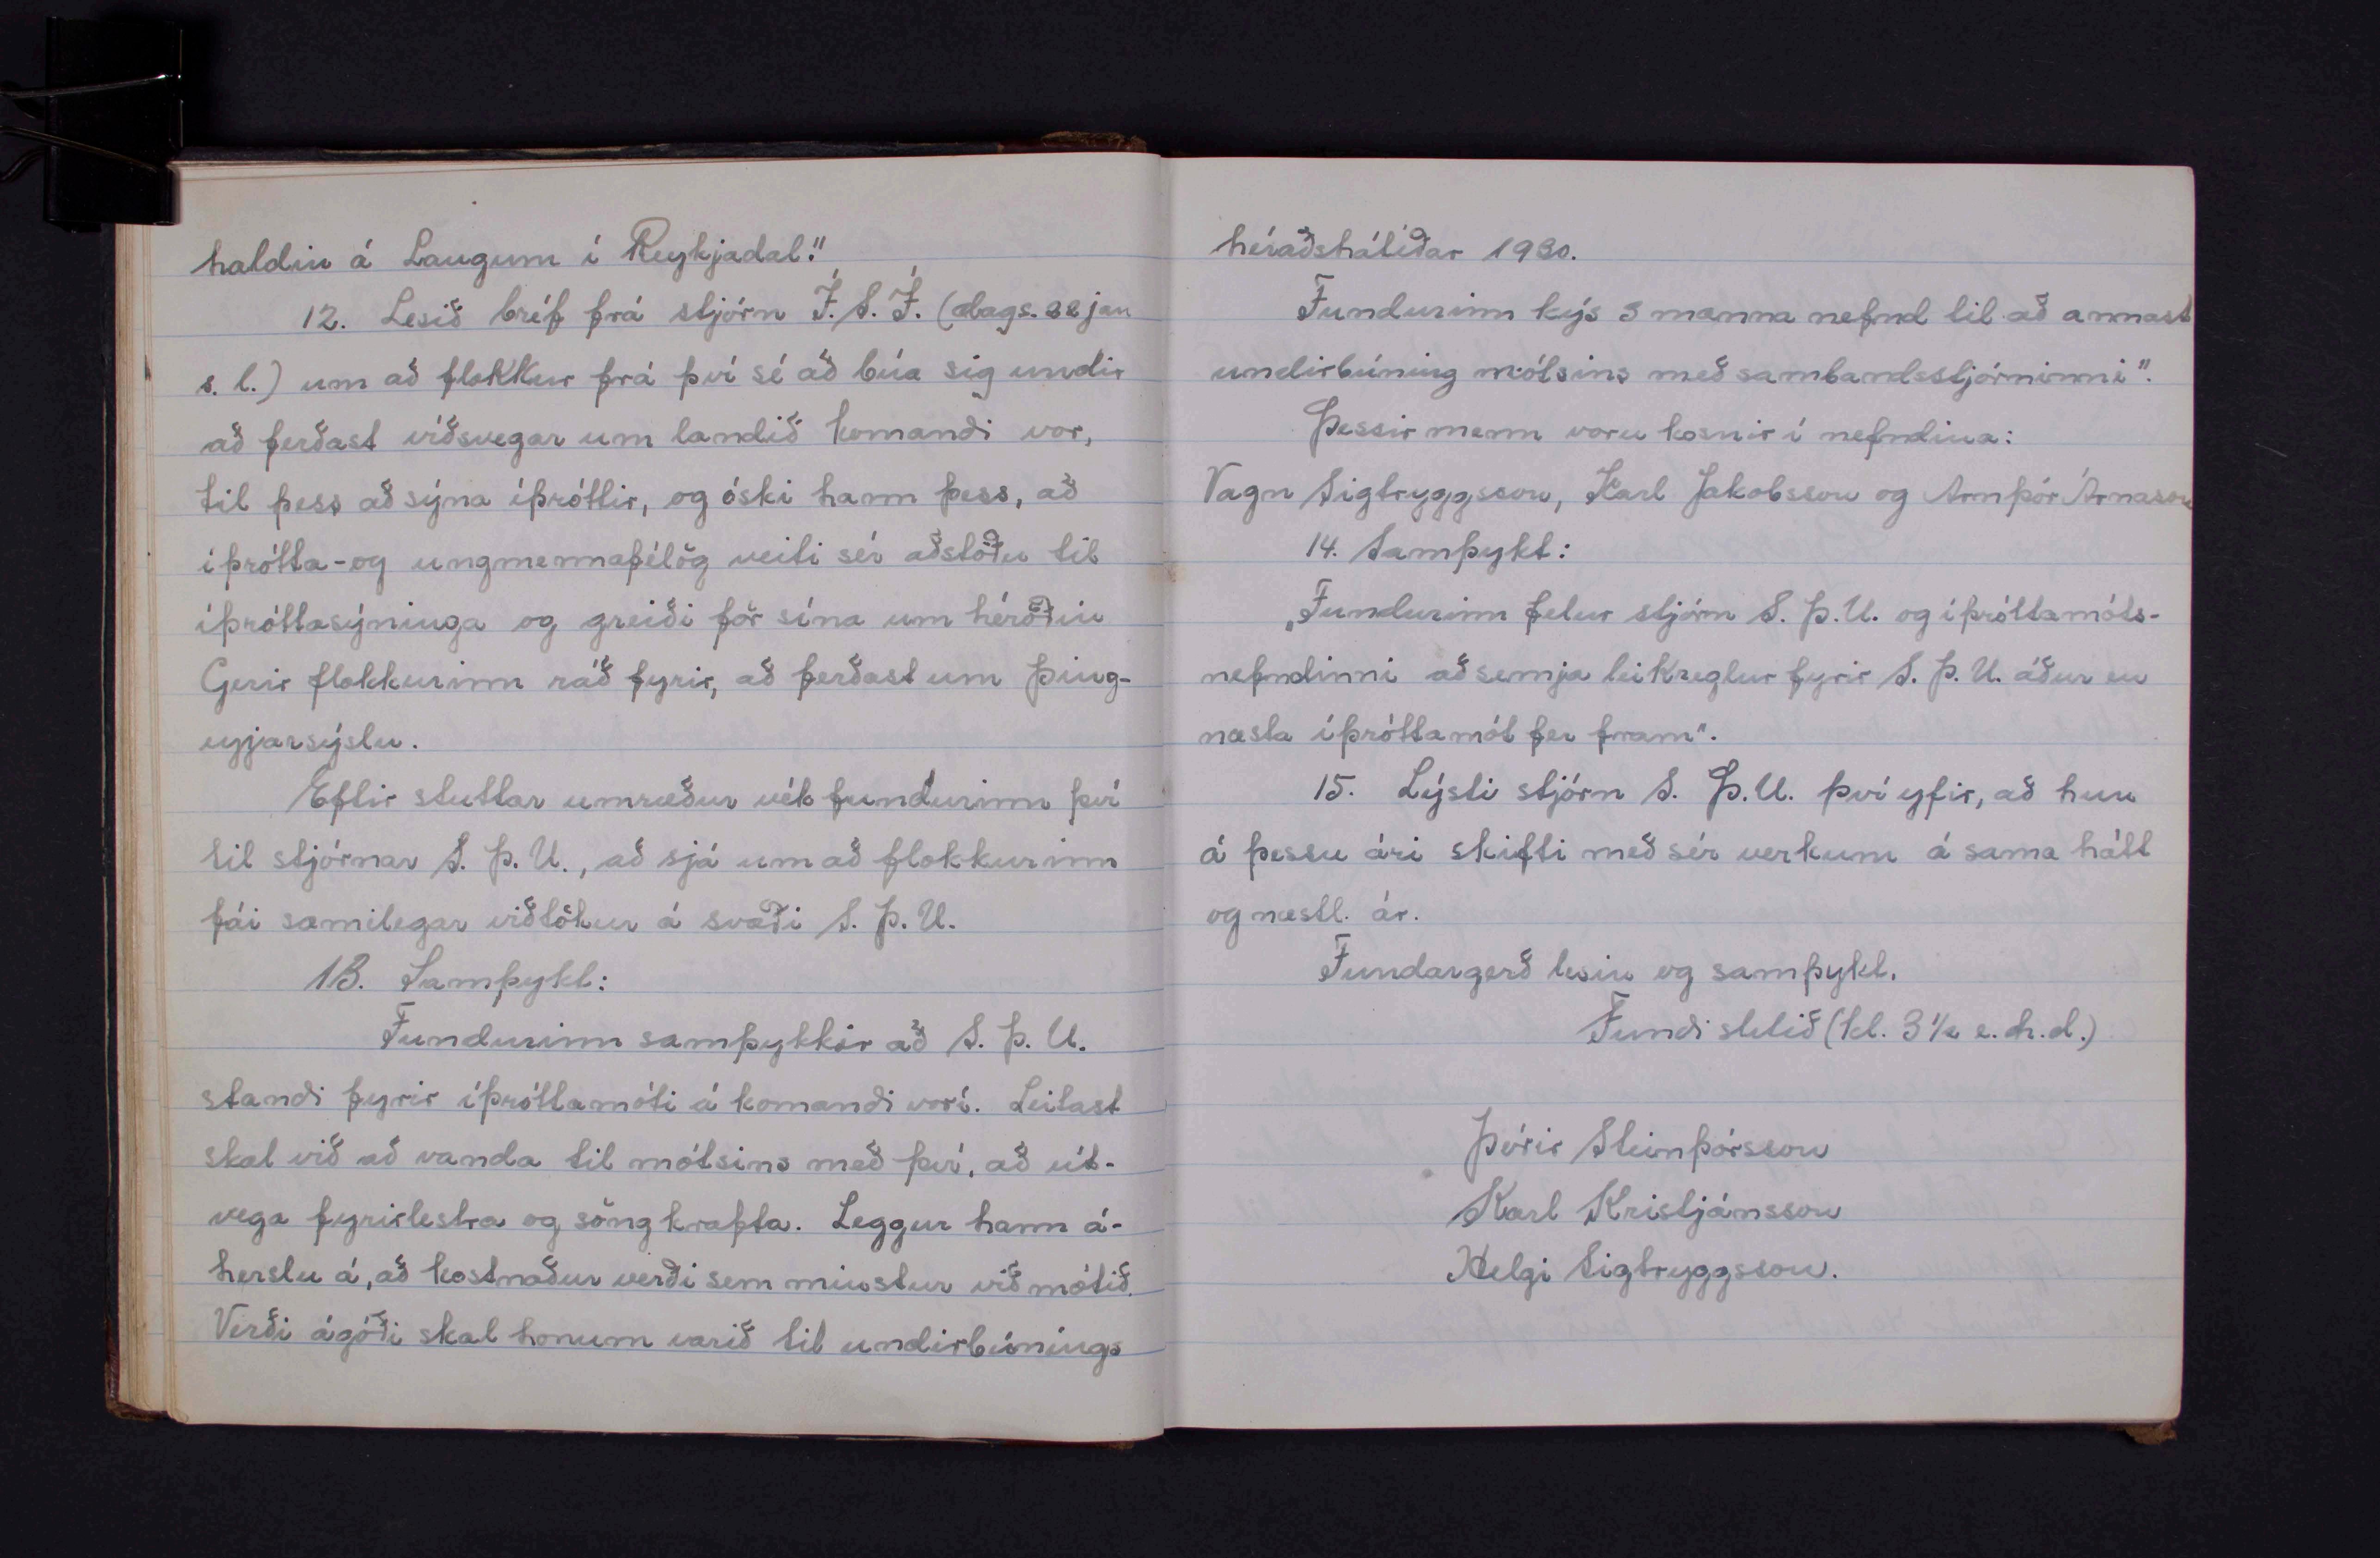 haldin á Laugum í Reykjadal."
12. Lesið bréf frá stjórn Í. S. Í. (dags. 22 jan
s. l.) um að flokkur frá því sé að búa sig undir
að ferðast víðsvegar um landið komandi vor,
til þess að sýna íþróttir, og óski hann þess, að
íþrótta- og ungmennafélög veiti sér aðstöðu til
íþróttasýninga og greiði för sína um héröðin
Gerir flokkurinn ráð fyrir, að ferðast um Þing-
eyjarsýslu.
Eftir stuttar umræður vék fundurinn því
til stjórnar S. Þ. U., að sjá um að flokkurinn
fái sæmilegar viðtökur á svæði S. Þ. U.
13. Samþykt:
Fundurinn samþykkir að S. Þ. U.
standi fyrir íþróttamóti á komandi vori. Leitast
skal við að vanda til mótsins með því, að út-
vega fyrirlestra og söngkrafta. Leggur hann á-
herslu á, að kostnaður verði sem minstur við mótið.
Verði ágóði skal honum varið til undirbúnings
héraðshátíðar 1930.
Fundurinn kýs 3 manna nefnd til að annast
undirbúning mótsins með sambandsstjórninni".
Þessir menn voru kosnir í nefndina:
Vagn Sigtryggsson, Karl Jakobsson og Arnþór Árnason
14. Samþykt:
„Fundurinn felur stjórn S. Þ. U. og íþróttamóts-
nefndinni að semja leikreglur fyrir S. Þ. U. áður en
næsta íþróttamót fer fram".
15. Lýsti stjórn S. Þ. U. því yfir, að hun
á þessu ári skifti með sér verkum á sama hátt
og næstl. ár.
Fundargerð lesin og samþykt.
Fundi slitið (kl. 3 1/2 e. h. d.)
Þórir Steinþórsson
Karl Kristjánsson
Helgi Sigtryggsson.